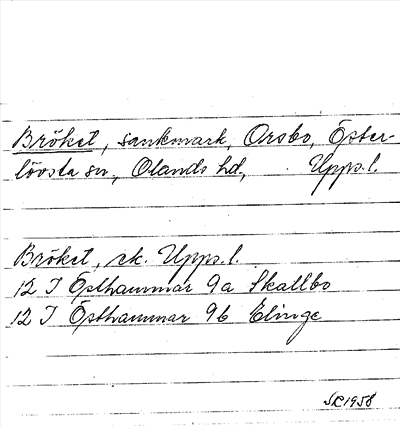 Bröket, sankmark, Orsbo, Öster-
lövsta sn, Olands hd, Upps. l.
Bröket, ek. Upps. l.
12 I Östhammar 9a Skallbo
12 I Östhammar 9b Elinge
SR 1958